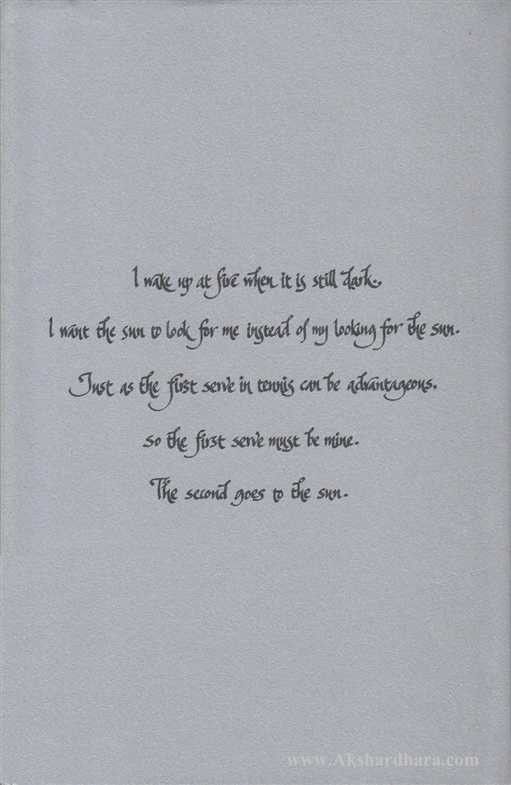 I wake up at five when it is still dark.
I want the sun to look for me instead of my looking for the sun.
Just as the first serve in tennis can be advantageous,
so the first serve must be mine.
The second goes to the sun.
www.Akshardhara.com